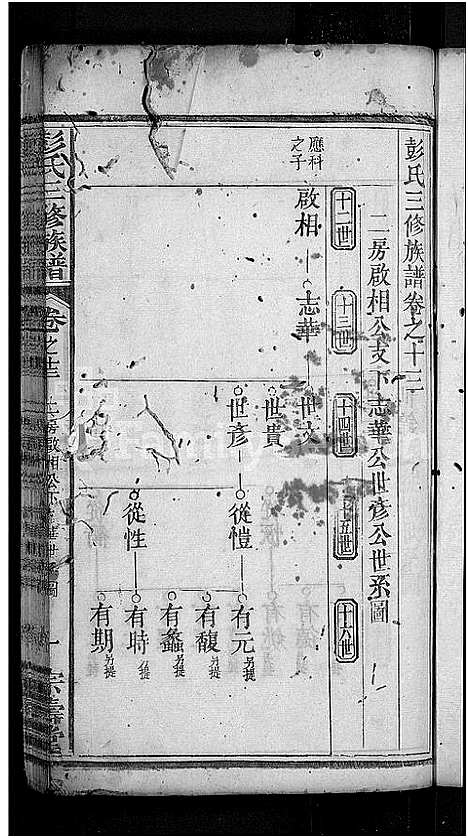 彭氏三修族譜卷之十三
二房啟相公支下志華公世彥公世系圖
十二世
十三世
十四世
十五世
十六世
應科之子
啟相
志華
世文
世貴
世彥
從愷
從性
有元 另提
有馥 另提
有蠡 另提
有時 另提
有期 另提
彭氏三修族譜
卷之十三
二房啟相公
世系圖
一